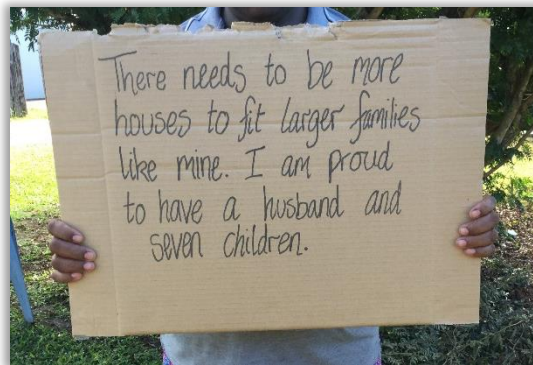 There needs to be more
houses to fit larger families
like mine. I am proud
to have a husband and
seven children.